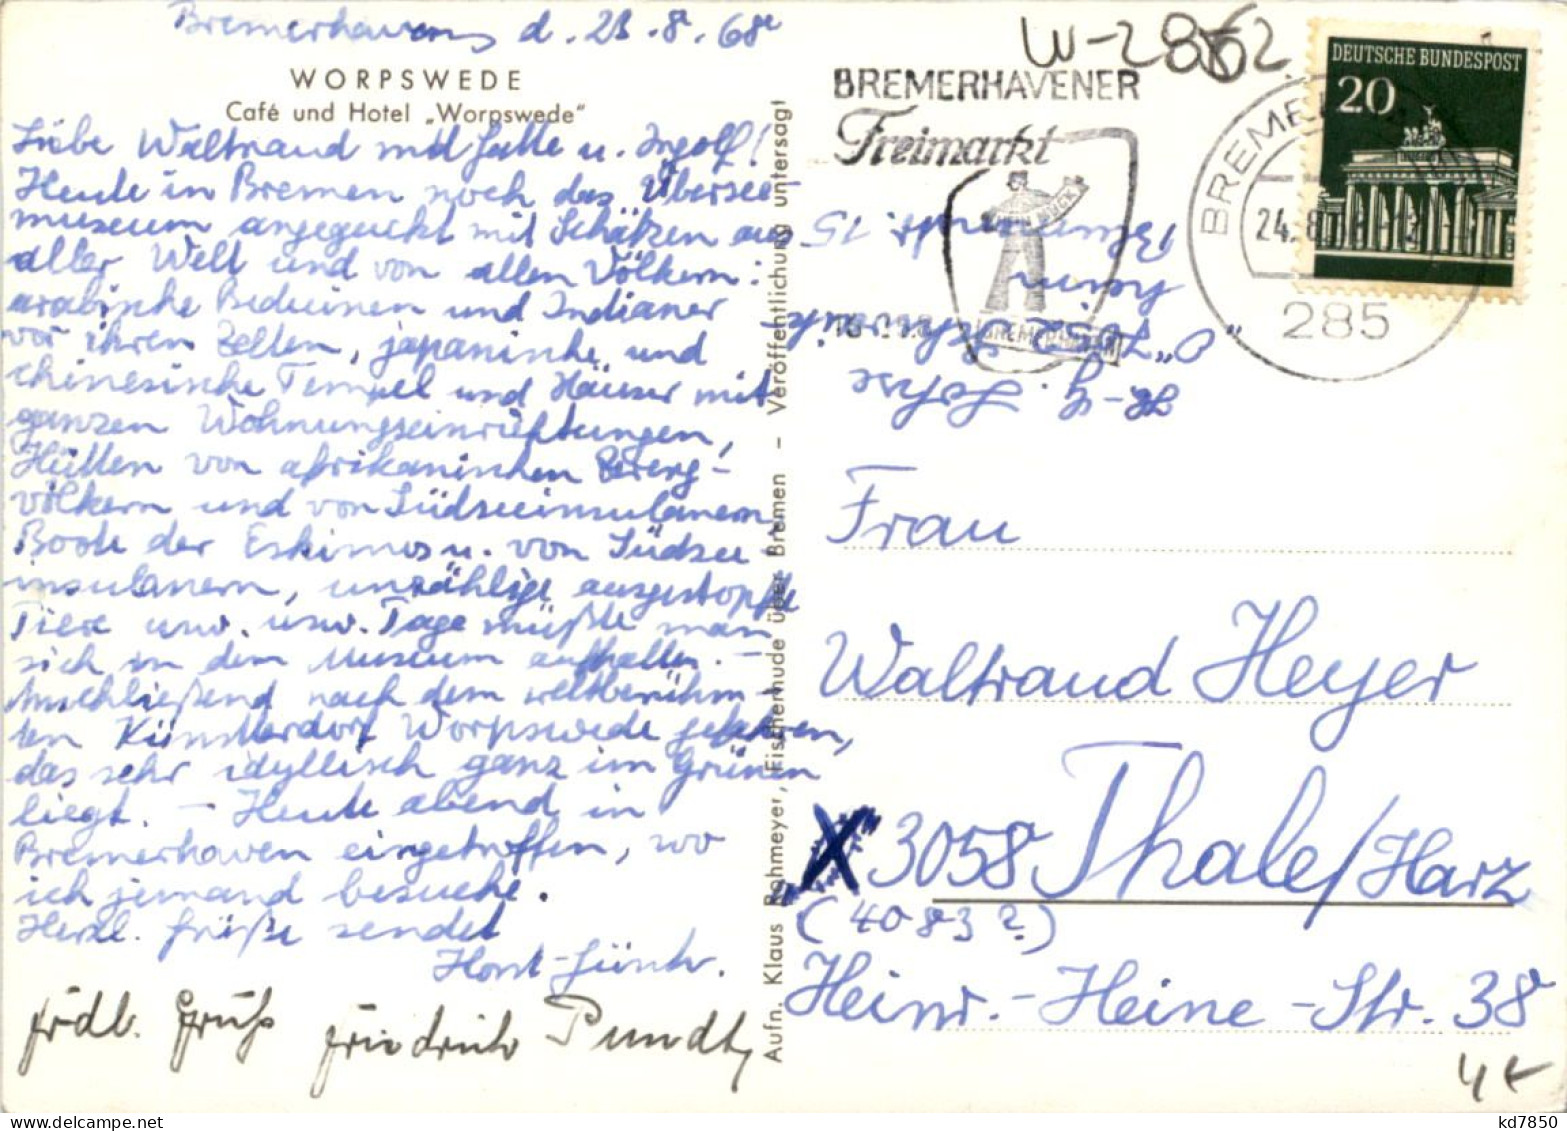 Bremerhaven, d. 23.8.68
WORPSWEDE
Café und Hotel „Worpswede“
Liebe Waltraud mit Jutte u. Ingolf!
Heute in Bremen noch das Übersee-
museum angeguckt mit Schätzen aus
aller Welt und von allen Völkern:
arabische Beduinen und Indianer
vor ihren Zelten, japanische und
chinesische Tempel und Häuser mit
ganzen Wohnungseinrichtungen,
Hütten von afrikanischen Berg-
völkern und von Südseeinsulanern,
Boote der Eskimos u. von Südsee-
insulanern, unzählige ausgestopfte
Tiere usw. usw. Tage müßte man
sich in dem Museum aufhalten. –
Anschließend nach dem weltberühm-
ten Künstlerdorf Worpswede gefahren,
das sehr idyllisch ganz im Grünen
liegt. – Heute abend in
Bremerhaven eingetroffen, wo
ich jemand besuche.
Herzl. Grüße sendet
Horst-Günter.
frdl. Gruß Friedrich Pundt
Aufn. Klaus Rohmeyer, Fischerhude über Bremen – Veröffentlichung untersagt
W-2862
BREMERHAVENER
Freimarkt
DEUTSCHE BUNDESPOST
20
24.8.
285
H.-G. Lohse
Frau
Waltraud Heyer
X 3058 Thale/Harz
(4083?)
Heinr.-Heine-Str. 38
kd7850